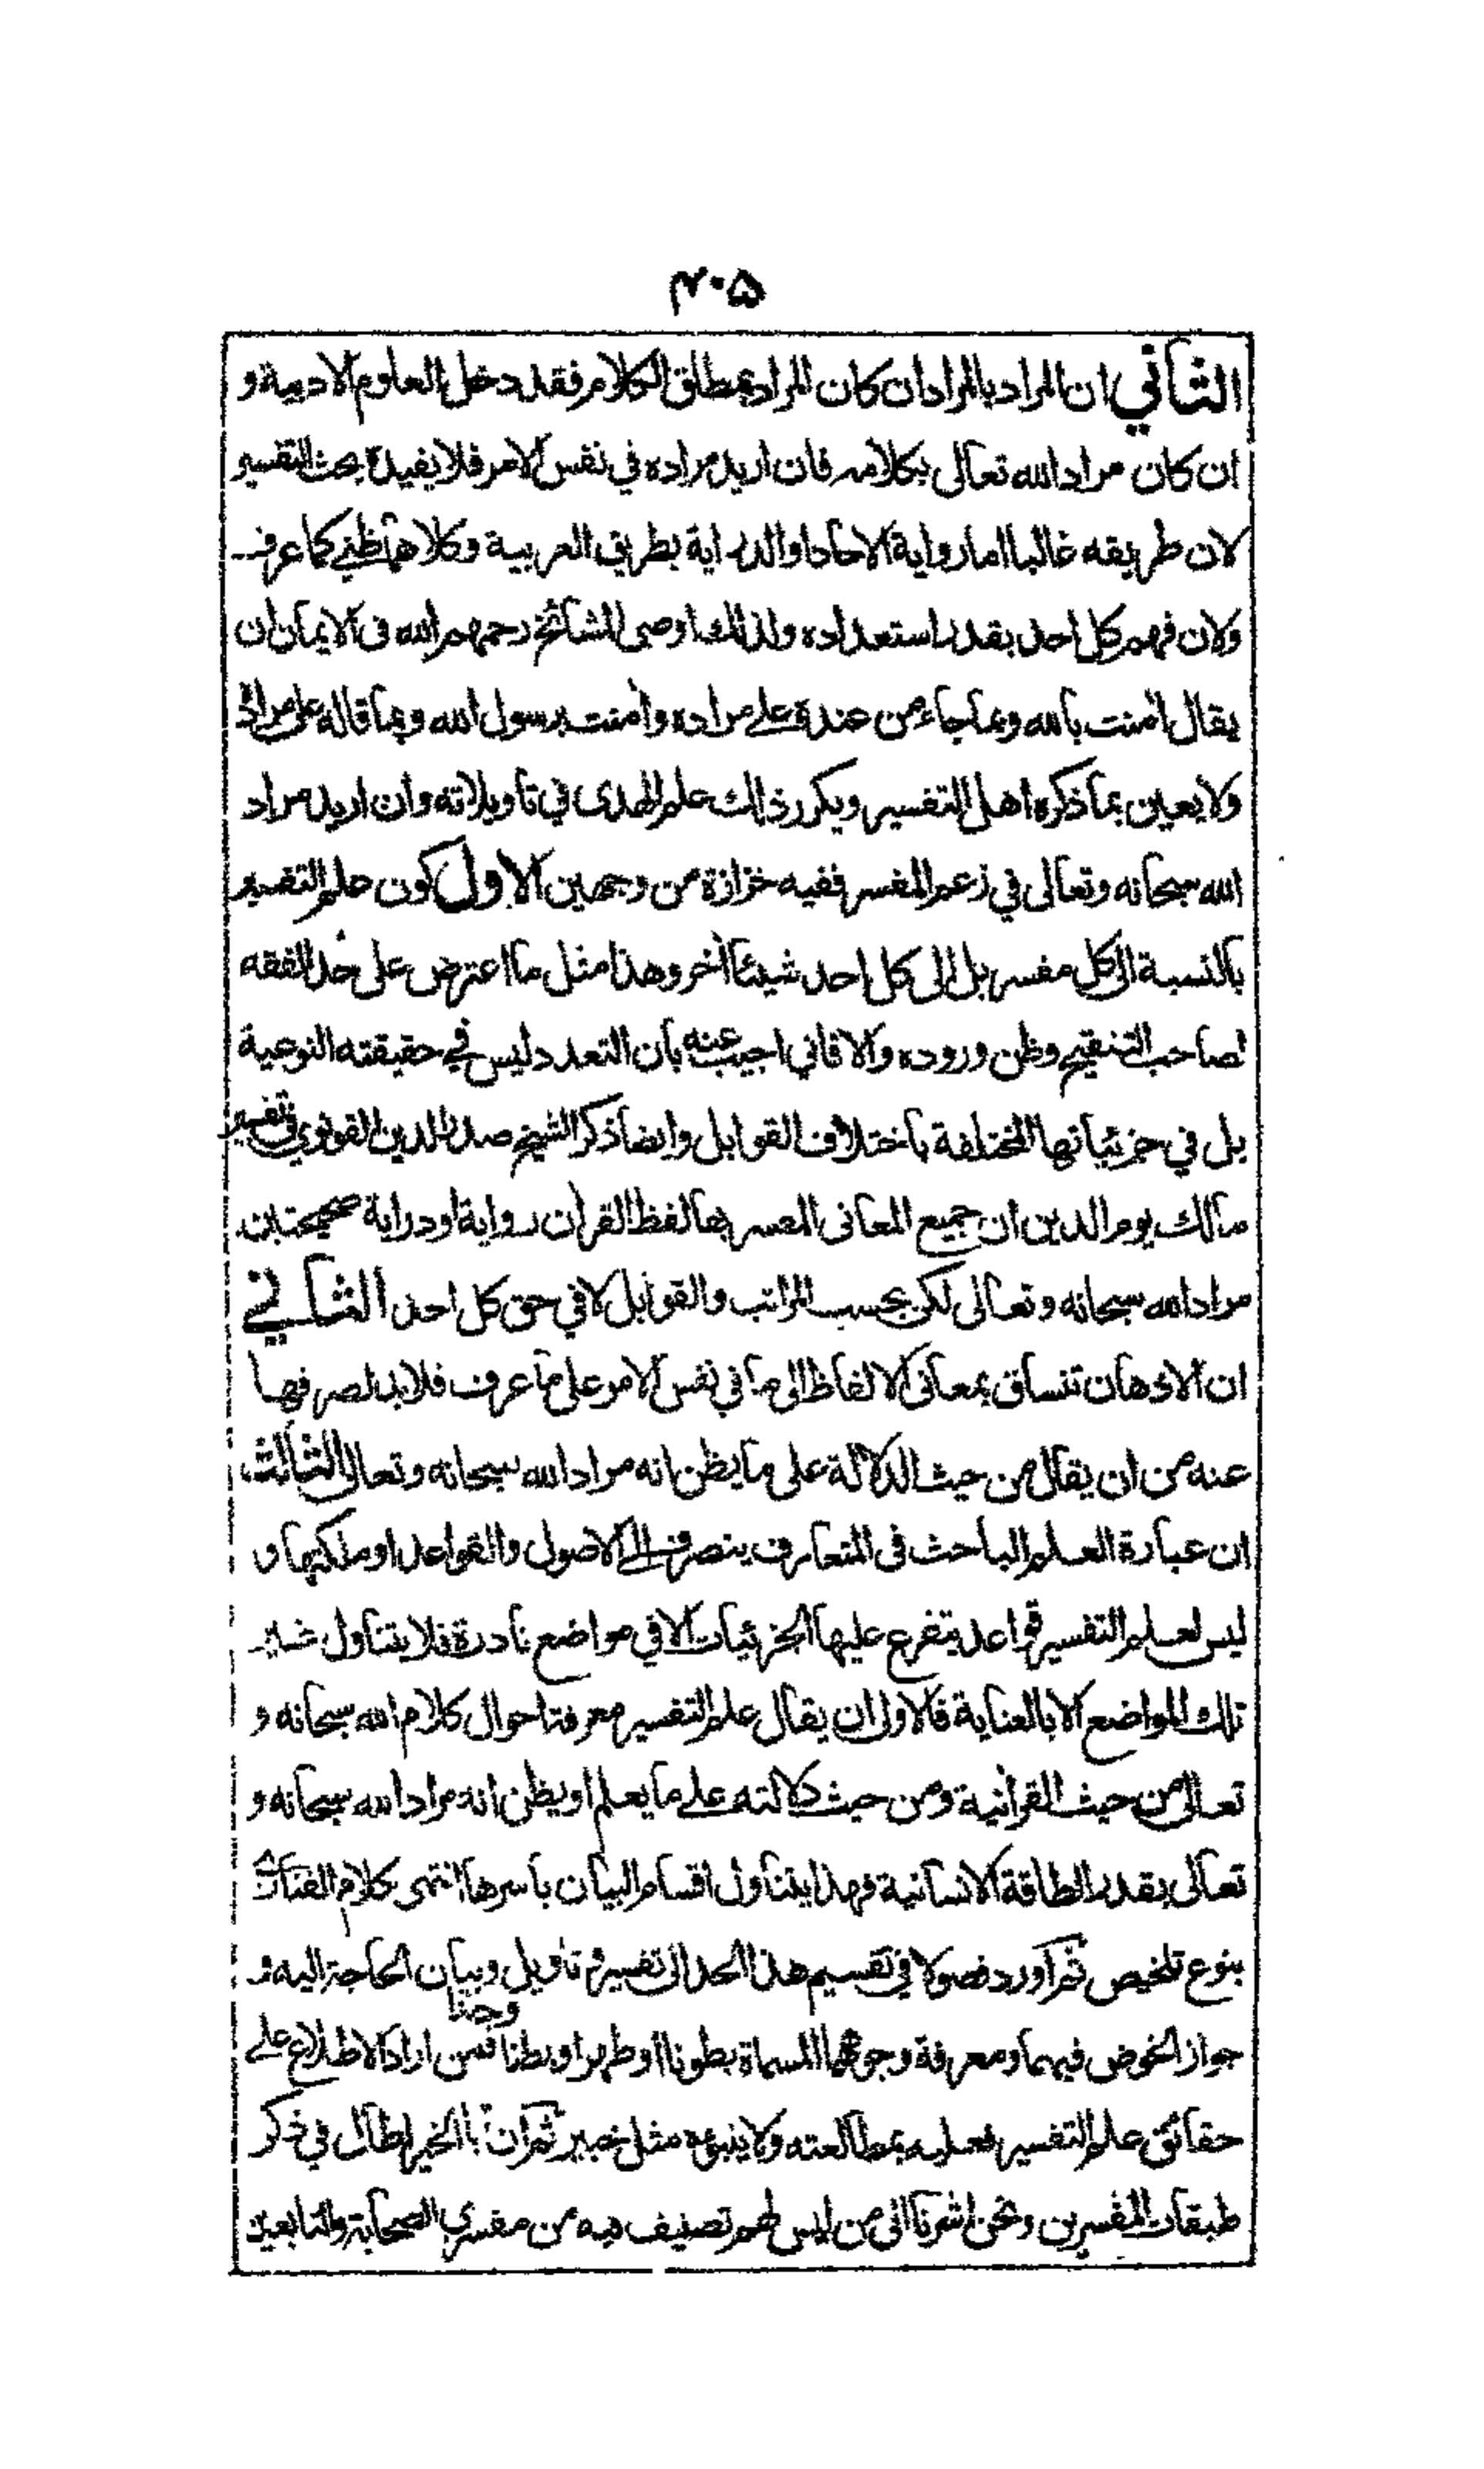 ٤٠٥
الثاني ان المراد بالمراد ان كان المراد بمطلق الكلام فقد دخل العلوم الادبية و
ان كان مراد الله تعالى بكلامه فان اريد مراده في نفس الامر فلا يفيده بحث التفسير
لان طريقه غالبا اما رواية الاحاد او الدراية بطريق العربية وكلاهما ظني كما عرف
ولان فهم كل احد بقدر استعداده ولذلك اوصى المشائخ رحمهم الله في الايمان ان
يقال امنت بالله وبما جاء من عنده على مراده وامنت برسول الله وبما قاله على مراده
ولا يعين بما ذكره اهل التفسير ويكرر ذلك علم الهدى في تاويلاته وان اريد مراد
الله سبحانه وتعالى في زعم المفسر ففيه خزازة من وجهين الاول كون علم التفسير
بالنسبة الى كل مفسر بل الى كل احد شيئا آخر وهذا مثل ما اعترض على حد الفقه
لصاحب التنقيح وظن وروده والا فاني اجيب عنه بان التعدد ليس في حقيقته النوعية
بل في جزئياتها المختلفة باختلاف القوابل وايضا ذكر الشيخ صدر الدين القونوي في تفسير
مالك يوم الدين ان جميع المعاني المفسر بها لفظ القرآن رواية او دراية صحيحتين
مراد الله سبحانه وتعالى لكن بحسب المراتب والقوابل لا في حق كل احد الثاني
ان الاذهان تنساق بمعاني الالفاظ الى ما في نفس الامر على ما عرف فلا بد لصرفها
عنه من ان يقال من حيث الدلالة على ما يظن انه مراد الله سبحانه وتعالى الثالث
ان عبارة العلم الباحث في المتعارف ينصرف الى الاصول والقواعد او ملكتها و
ليس لعلم التفسير قواعد يتفرع عليها الجزئيات الا في مواضع نادرة فلا يتناول غير
تلك المواضع الا بالعناية فالاولى ان يقال علم التفسير معرفة احوال كلام الله سبحانه و
تعالى من حيث القرآنية ومن حيث دلالته على ما يعلم او يظن انه مراد الله سبحانه و
تعالى بقدر الطاقة الانسانية فهذا يتناول اقسام البيان باسرها انتهى كلام الفناري
بنوع تلخيص ثم اورد فصولا في تقسيم هذا الحد الى تفسير وتاويل وبيان الحاجة اليه و
جواز الخوض فيهما ومعرفة وجوههما المسماة بطونا او ظهرا وبطنا وحدا فمن اراد الاطلاع على
حقائق علم التفسير فعليه بمطالعته ولا ينبؤه مثل خبير ثم ان ابا الخير اطال في ذكر
طبقات المفسرين ونحن اشرنا الى من ليس لهم تصنيف فيه من مفسري الصحابة والتابعين